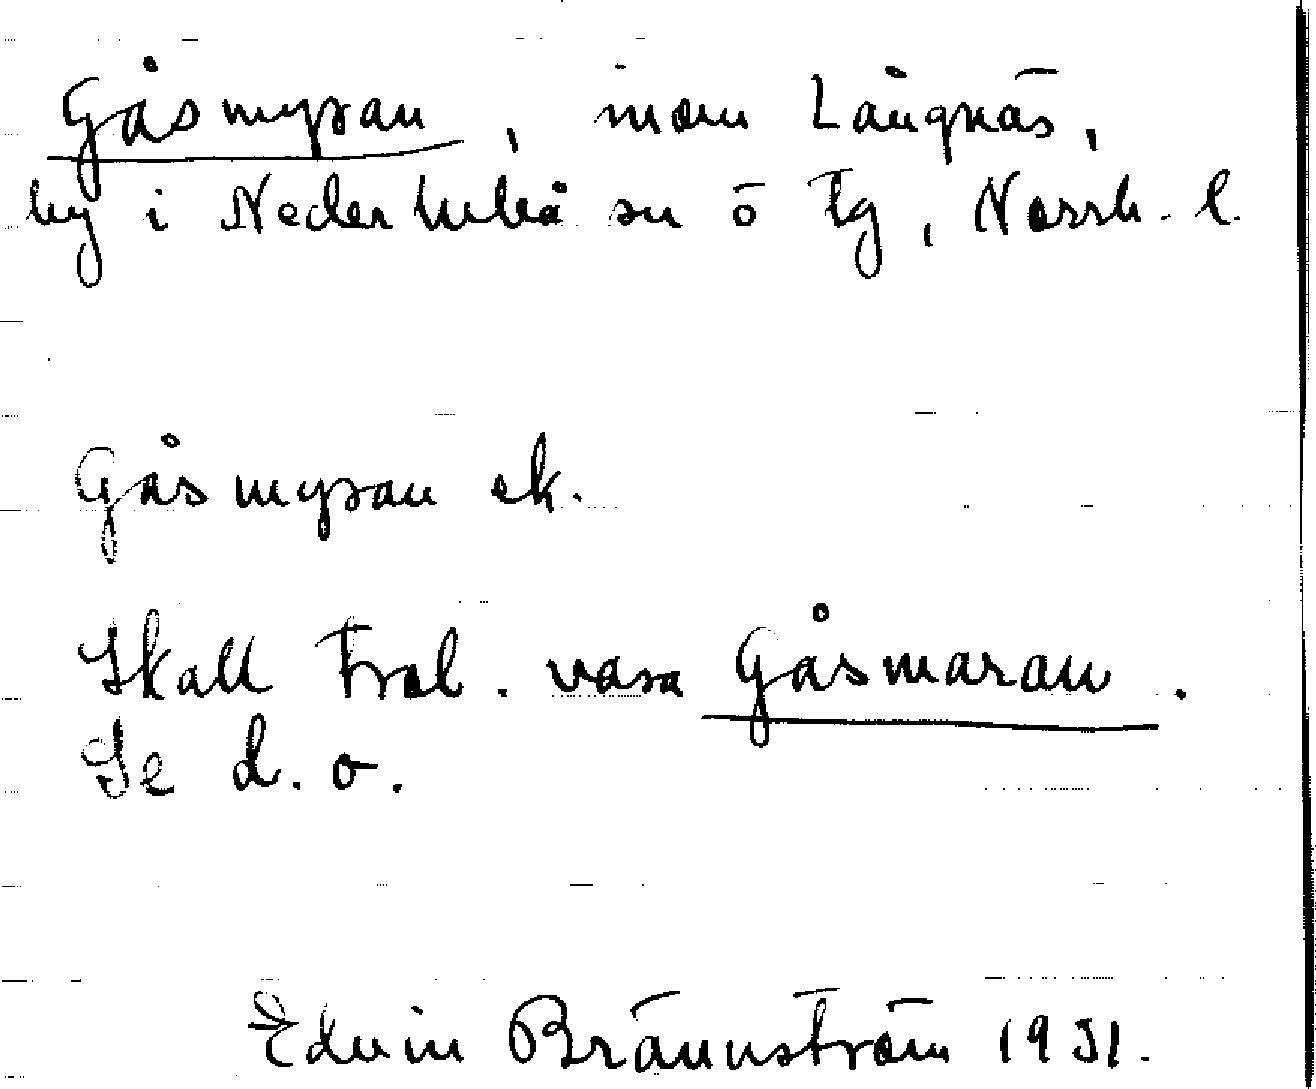 Gåsmyran, inom Långnäs,
by i Nederluleå sn ö tg, Norrb. l.
Gåsmyran ek.
Skall trol. vara Gåsmaran.
Se d. o.
Edvin Brännström 1931.